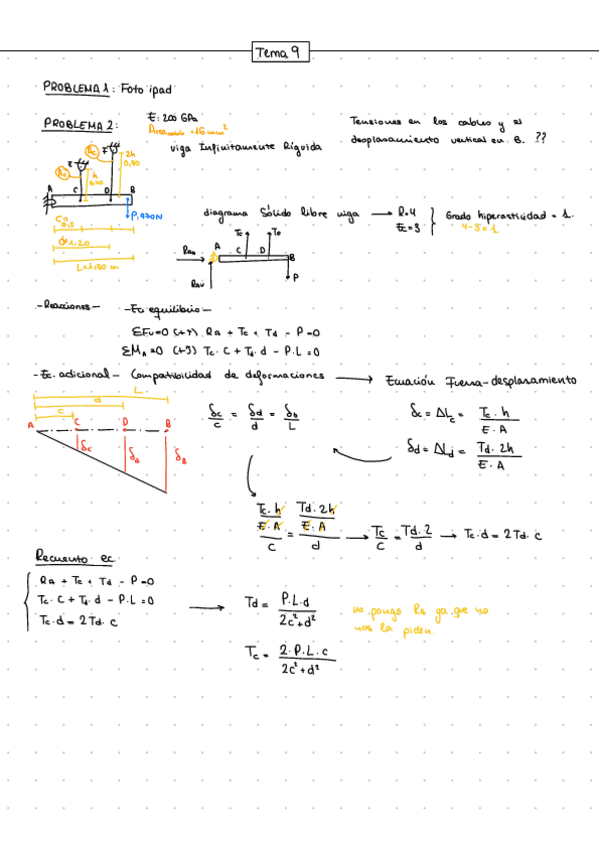 Tema 9
PROBLEMA 1: Foto ipad
PROBLEMA 2:
E: 200 GPa
viga Infinitamente Rígida
Tensiones en los cables y el
desplazamiento vertical en B. ??
E F
2h
0,80
h
0,40
A C D B
0,5
d: 1.20
L=1,80 m
diagrama Sólido libre viga → R=4
Ec=3
Grado hiperasticidad = 1.
4-3=1
Tc TD
A C D B
P
-Reacciones- -Ec equilibrio-
ΣFv=0 (+↑) RA + Tc + Td - P=0
ΣMA=0 (+↺) Tc·C + Td·d - P·L=0
-Ec. adicional- Compatibilidad de deformaciones → Ecuación Fuerza-desplazamiento
L
d
c
A C D B
δc δd δB
δc/c = δd/d = δb/L
δc = ΔLc = Tc·h / E·A
δd = ΔLd = Td·2h / E·A
(Tc·h / E·A) / c = (Td·2h / E·A) / d → Tc/c = Td·2/d → Tc·d = 2Td·c
Recuento ec
RA + Tc + Td - P=0
Tc·C + Td·d - P·L=0
Tc·d = 2Td·c
→ Td = P·L·d / 2c²+d²
Tc = 2·P·L·c / 2c²+d²
no pongo Ra ya que no
nos la piden.